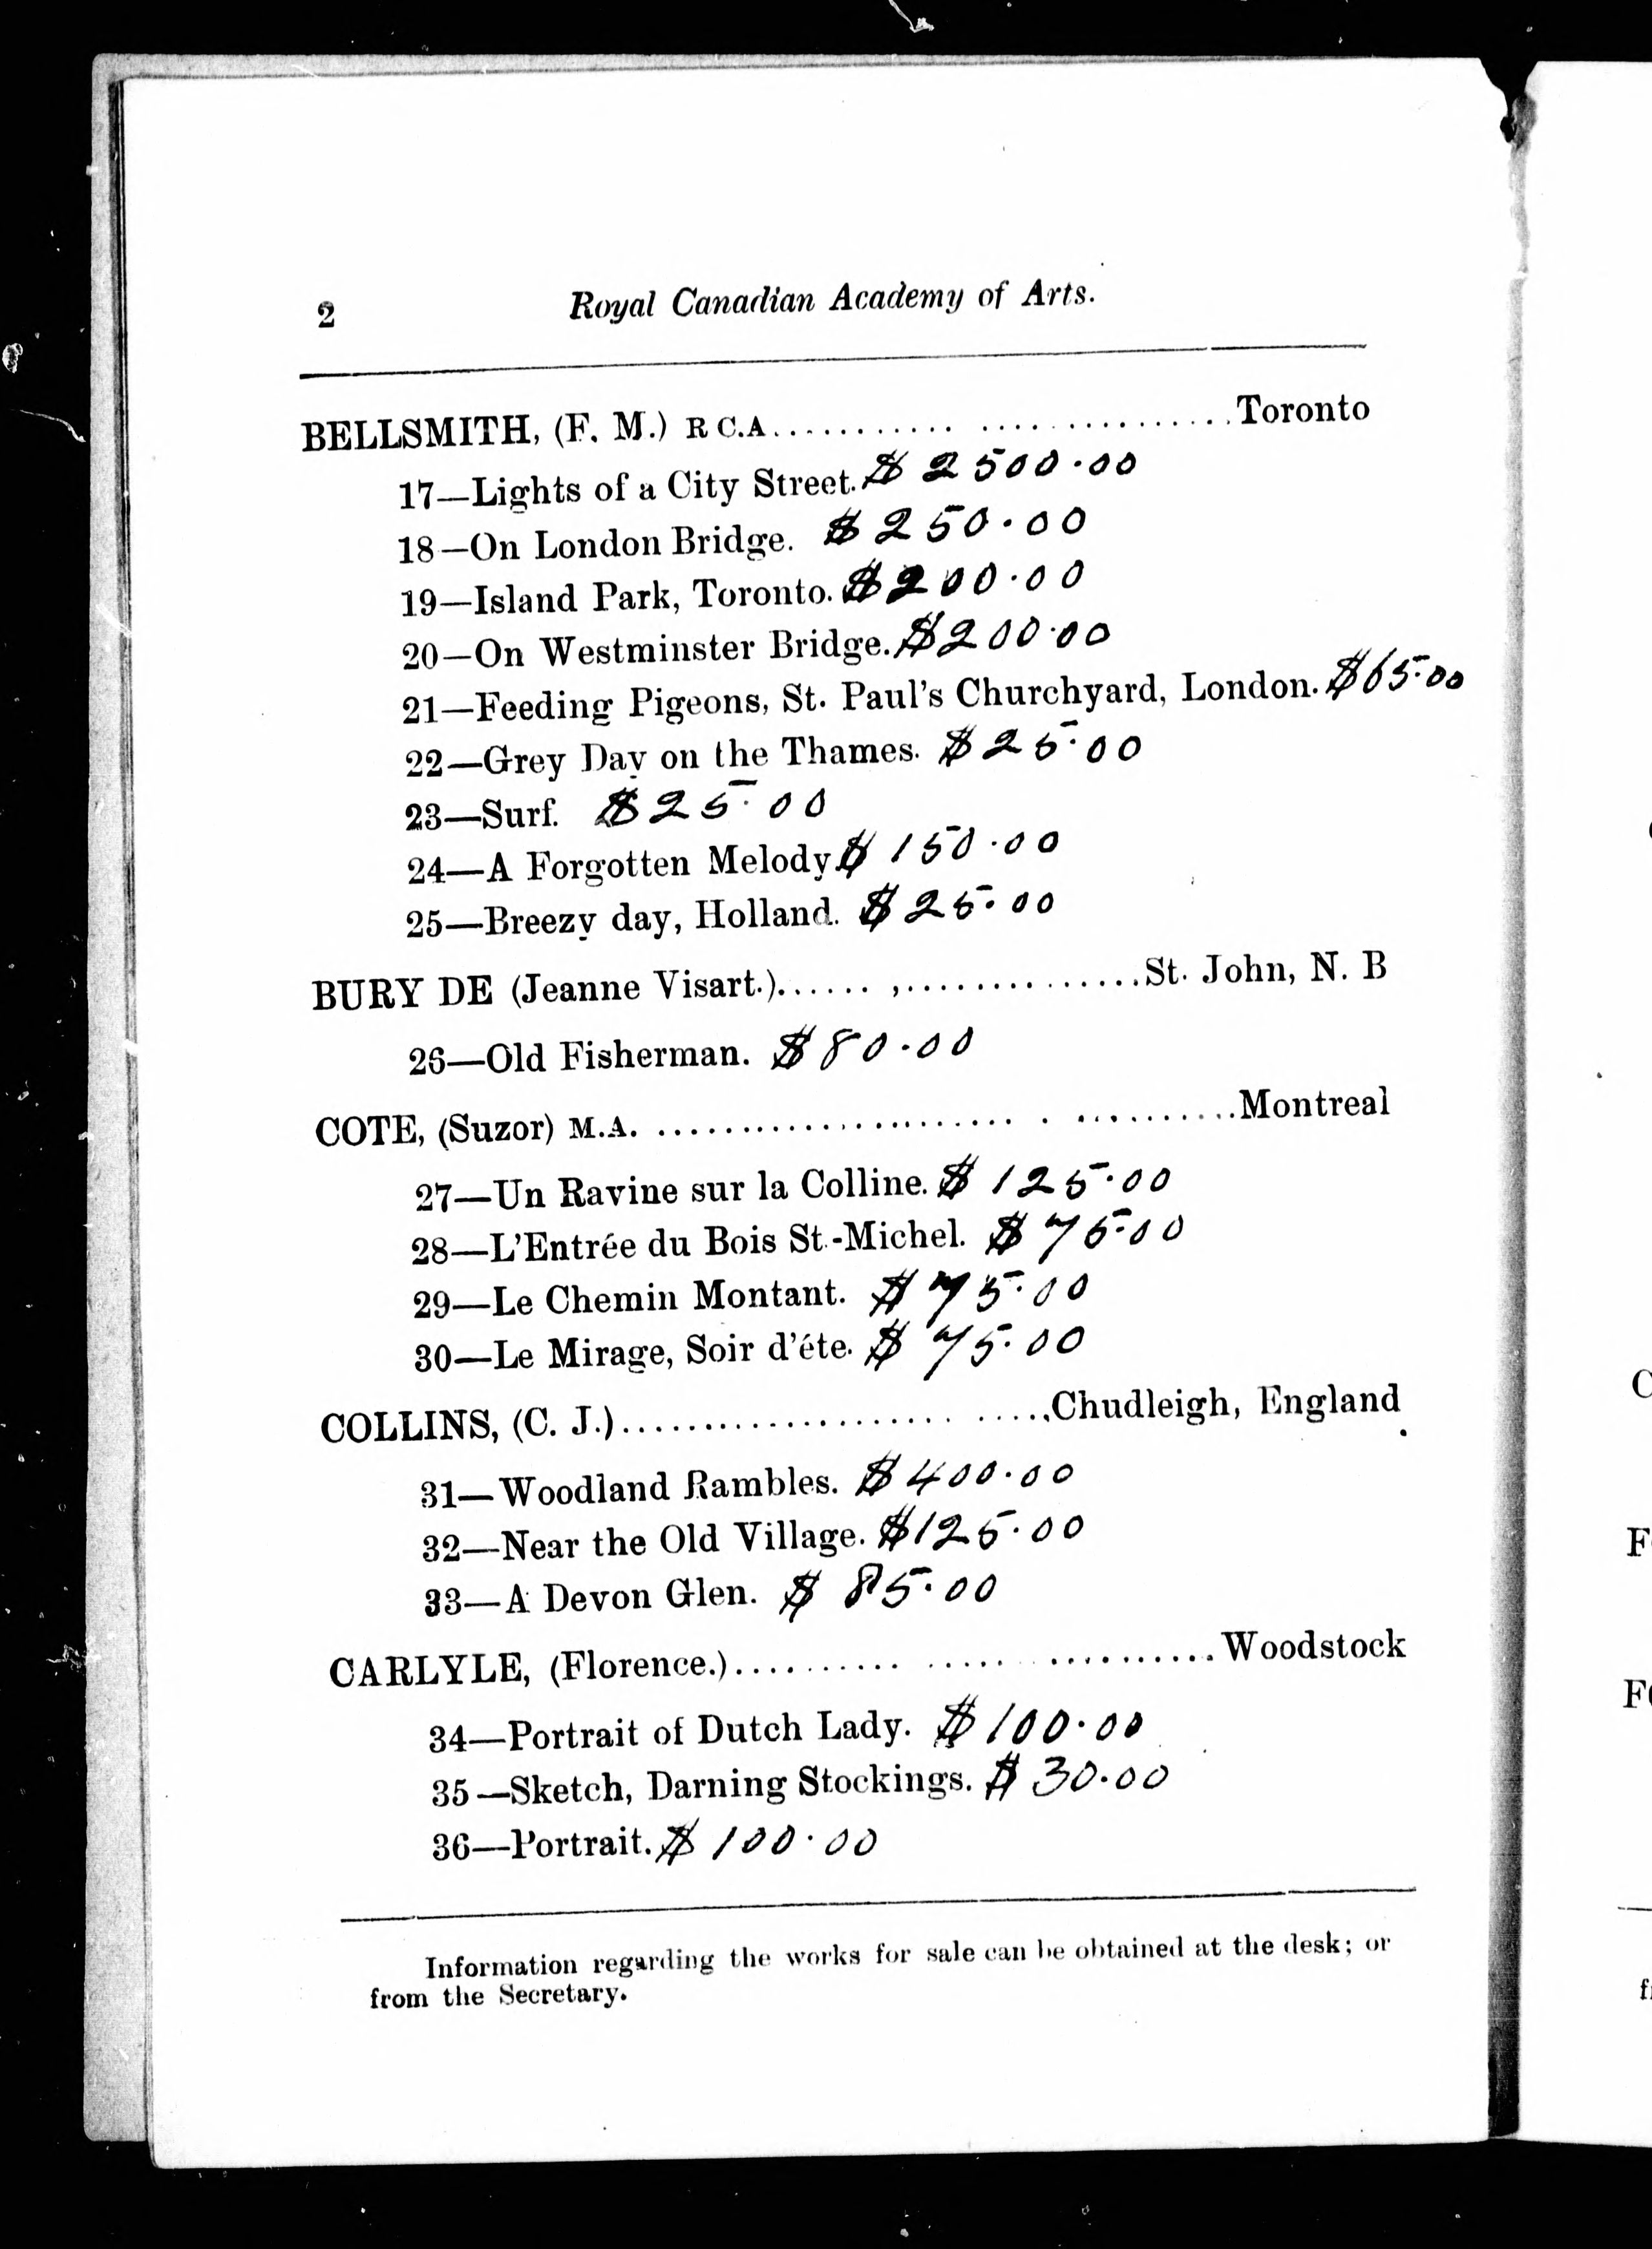 2 Royal Canadian Academy of Arts.
BELLSMITH, (F. M.) R C.A........... .... . ............Toronto
17—Lights of a City Street. $2500.00
18—On London Bridge. $250.00
19—Island Park, Toronto. $200.00
20—On Westminster Bridge. $200.00
21—Feeding Pigeons, St. Paul's Churchyard, London. $65.00
22—Grey Day on the Thames. $25.00
23—Surf. $25.00
24—A Forgotten Melody $150.00
25—Breezy day, Holland. $25.00
BURY DE (Jeanne Visart.)...... ,...............St. John, N. B
26—Old Fisherman. $80.00
COTE, (Suzor) M.A. ...................... . ..........Montreal
27—Un Ravine sur la Colline. $125.00
28—L'Entrée du Bois St.-Michel. $75.00
29—Le Chemin Montant. $75.00
30—Le Mirage, Soir d'éte. $75.00
COLLINS, (C. J.)..................... .....Chudleigh, England
31—Woodland Rambles. $400.00
32—Near the Old Village. $125.00
33—A Devon Glen. $85.00
CARLYLE, (Florence.)........... ..... ..........Woodstock
34—Portrait of Dutch Lady. $100.00
35—Sketch, Darning Stockings. $30.00
36—Portrait. $100.00
Information regarding the works for sale can be obtained at the desk; or
from the Secretary.